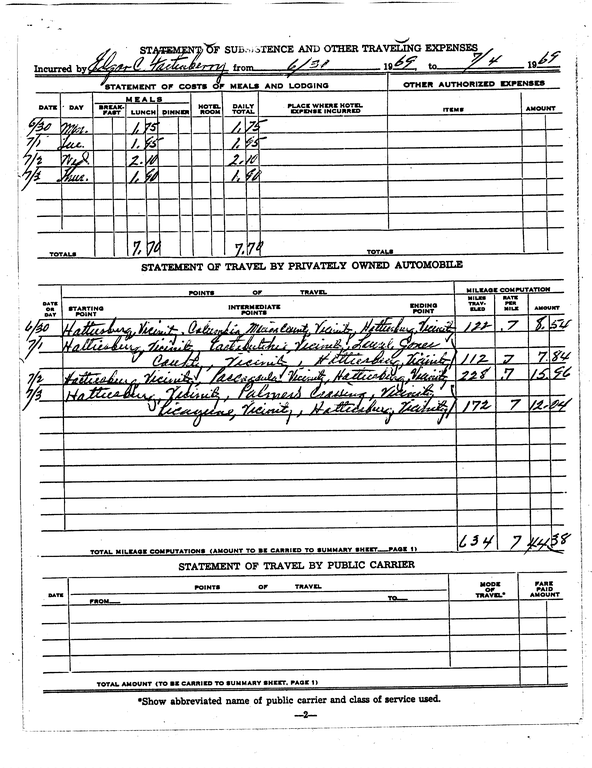 STATEMENT OF SUBSISTENCE AND OTHER TRAVELING EXPENSES
Incurred by Edgar C. Fortenberry from 6/30 1969 to 7/4 1969
STATEMENT OF COSTS OF MEALS AND LODGING OTHER AUTHORIZED EXPENSES
DATE DAY MEALS BREAK-FAST LUNCH DINNER HOTEL ROOM DAILY TOTAL PLACE WHERE HOTEL EXPENSE INCURRED ITEMS AMOUNT
6/30 Mon. 1.75 1.75
7/1 Tue. 1.95 1.95
7/2 Wed. 2.10 2.10
7/3 Thur. 1.90 1.90
TOTALS 7.70 7.70 TOTALS
STATEMENT OF TRAVEL BY PRIVATELY OWNED AUTOMOBILE
POINTS OF TRAVEL MILEAGE COMPUTATION
DATE OR DAY STARTING POINT INTERMEDIATE POINTS ENDING POINT MILES TRAV-ELED RATE PER MILE AMOUNT
6/30 Hattiesburg, Vicinity, Columbia, Marion County, Vicinity, Hattiesburg, Vicinity 122 .7 8.54
7/1 Hattiesburg, Vicinity, Eastabutchie, Vicinity, Laurel, Jones
County, Vicinity, Hattiesburg, Vicinity 112 7 7.84
7/2 Hattiesburg, Vicinity, Pascagoula, Vicinity, Hattiesburg, Vicinity 228 .7 15.96
7/3 Hattiesburg, Vicinity, Palmers Crossing, Vicinity,
Picayune, Vicinity, Hattiesburg, Vicinity 172 7 12.04
TOTAL MILEAGE COMPUTATIONS (AMOUNT TO BE CARRIED TO SUMMARY SHEET PAGE 1) 634 7 44.38
STATEMENT OF TRAVEL BY PUBLIC CARRIER
DATE POINTS OF TRAVEL MODE OF TRAVEL* FARE PAID AMOUNT
FROM TO
TOTAL AMOUNT (TO BE CARRIED TO SUMMARY SHEET, PAGE 1)
*Show abbreviated name of public carrier and class of service used.
—2—